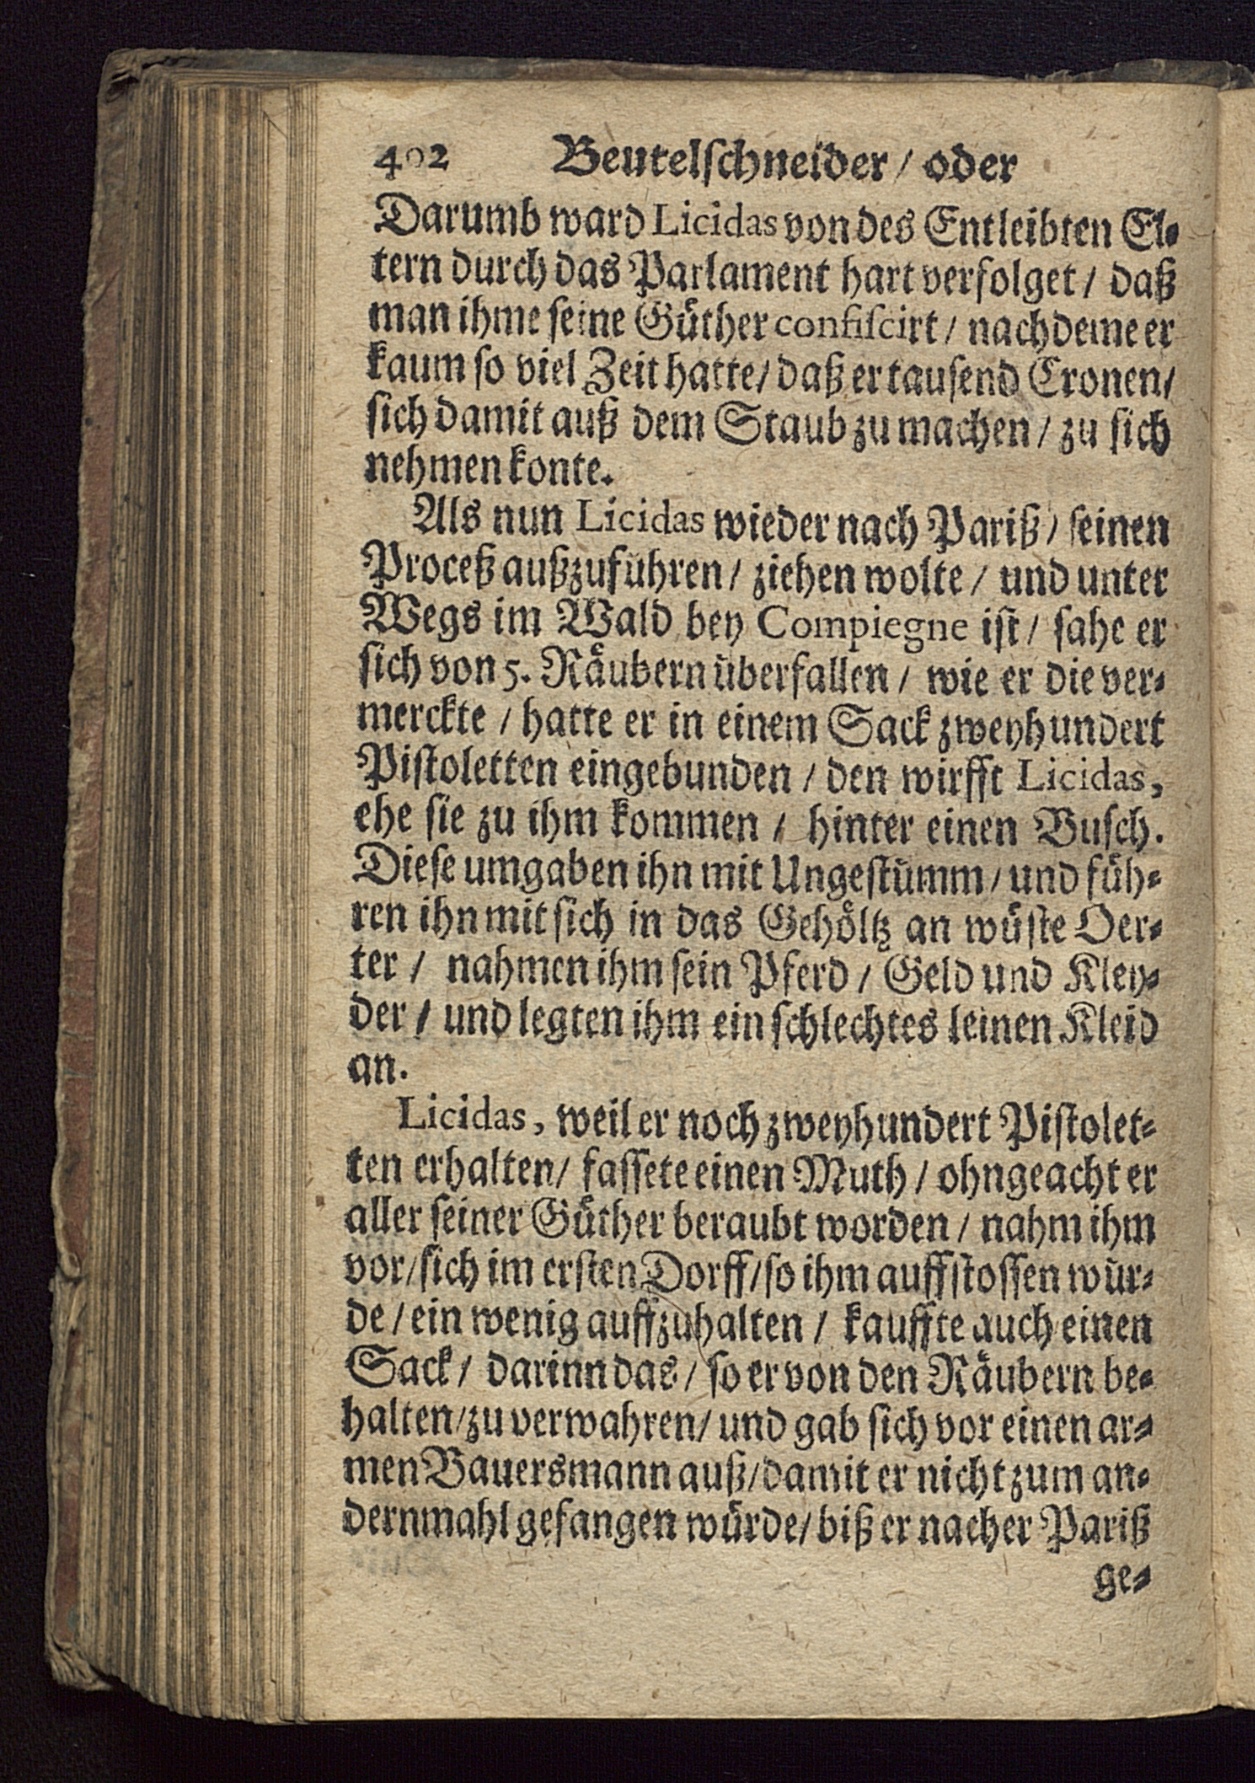 402 Beutelschneider / oder
Darumb ward Licidas von des Entleibten El-
tern durch das Parlament hart verfolget / daß
man ihme seine Güther confiscirt / nachdeme er
kaum so viel Zeit hatte / daß er tausend Cronen /
sich damit auß dem Staub zu machen / zu sich
nehmen konte.
Als nun Licidas wieder nach Pariß / seinen
Proceß außzuführen / ziehen wolte / und unter
Wegs im Wald bey Compiegne ist / sahe er
sich von 5. Räubern überfallen / wie er die ver-
merckte / hatte er in einem Sack zweyhundert
Pistoletten eingebunden / den wirfft Licidas,
ehe sie zu ihm kommen / hinter einen Busch.
Diese umgaben ihn mit Ungestümm / und füh-
ren ihn mit sich in das Gehöltz an wüste Oer-
ter / nahmen ihm sein Pferd / Geld und Kley-
der / und legten ihm ein schlechtes leinen Kleid
an.
Licidas, weil er noch zweyhundert Pistolet-
ten erhalten / fassete einen Muth / ohngeacht er
aller seiner Güther beraubt worden / nahm ihm
vor / sich im ersten Dorff / so ihm auffstossen wür-
de / ein wenig auffzuhalten / kauffte auch einen
Sack / darinn das / so er von den Räubern be-
halten / zu verwahren / und gab sich vor einen ar-
men Bauersmann auß / damit er nicht zum an-
dernmahl gefangen würde / biß er nacher Pariß
ge-